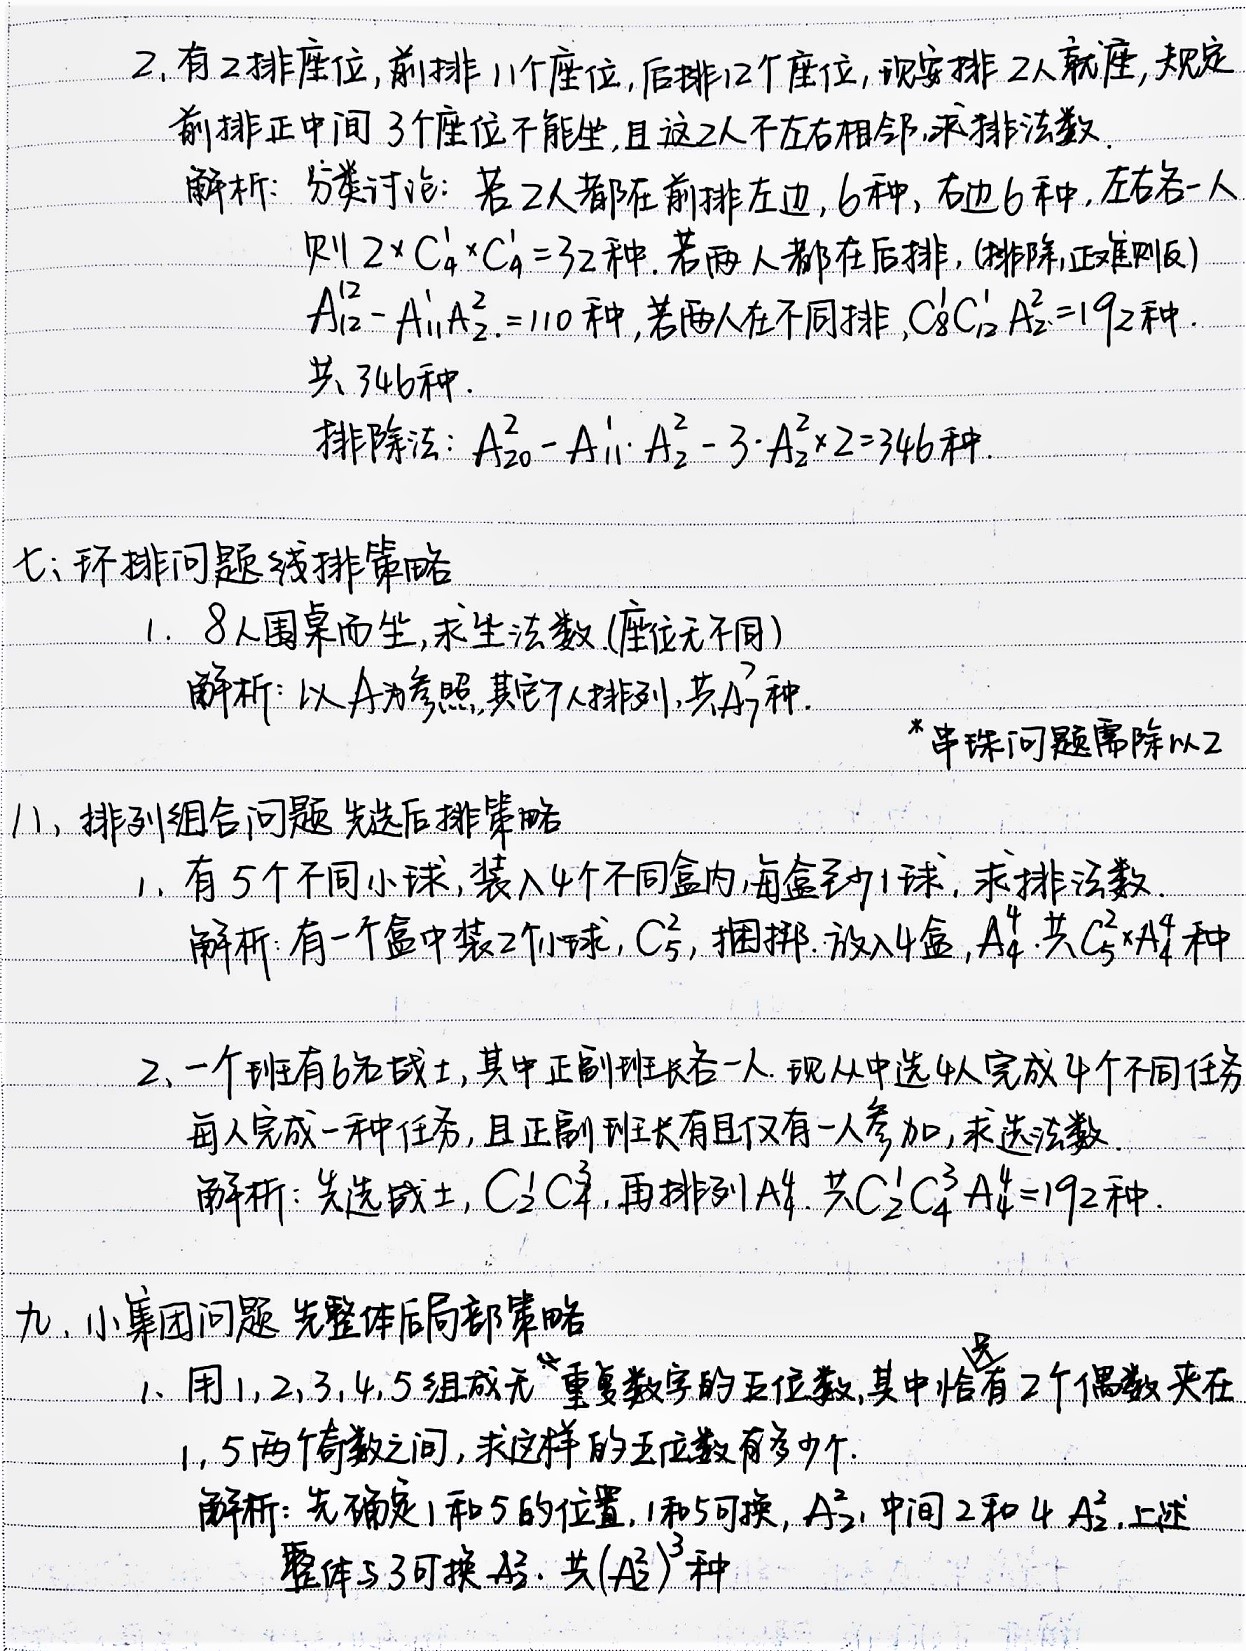 2、有2排座位,前排11个座位,后排12个座位,现安排2人就座,规定
前排正中间3个座位不能坐,且这2人不左右相邻,求排法数.
解析: 分类讨论: 若2人都在前排左边,6种, 右边6种,左右各一人
则2×C₄¹×C₄¹=32种.若两人都在后排,(排除,正难则反)
A₁₂¹²-A₁₁¹A₂².=110种,若两人在不同排,C₈¹C₁₂¹A₂²=192种.
共346种.
排除法: A₂₀²-A₁₁¹·A₂²-3·A₂²×2=346种.
七、环排问题线排策略
1. 8人围桌而坐,求坐法数.(座位无不同)
解析: 以A为参照,其它7人排列,共A₇⁷种.
*串珠问题需除以2
八、排列组合问题 先选后排策略
1、有5个不同小球,装入4个不同盒内,每盒至少1球,求排法数.
解析:有一个盒中装2个小球,C₅²,捆绑.放入4盒,A₄⁴.共C₅²×A₄⁴种
2、一个班有6名战士,其中正副班长各一人.现从中选4人完成4个不同任务
每人完成一种任务,且正副班长有且仅有一人参加,求选法数.
解析: 先选战士,C₂¹C₄³,再排列A₄⁴.共C₂¹C₄³A₄⁴=192种.
九、小集团问题 先整体后局部策略
1、用1,2,3,4,5组成无重复数字的五位数,其中恰有2个偶数夹在
1,5两个奇数之间,求这样的五位数有多少个.
解析: 先确定1和5的位置,1和5可换,A₂²,中间2和4 A₂²,上述
整体与3可换A₂².共(A₂²)³种